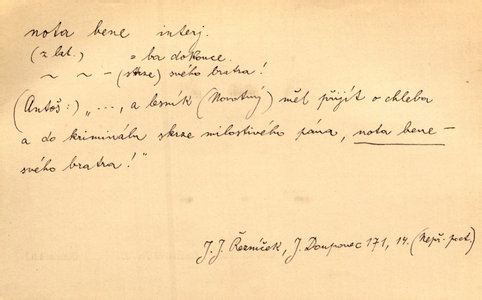 nota bene interj.
(z lat.) = ba dokonce.
~ ~ - (skrze) svého bratra!
(Antoš:) „..., a lesník (Novotný) měl přijít o chleba
a do kriminálu skrze milostivého pána, nota bene –
svého bratra!"
J. J. Řezníček, J. Doupovec 171, 14. (Nepř. poct.)